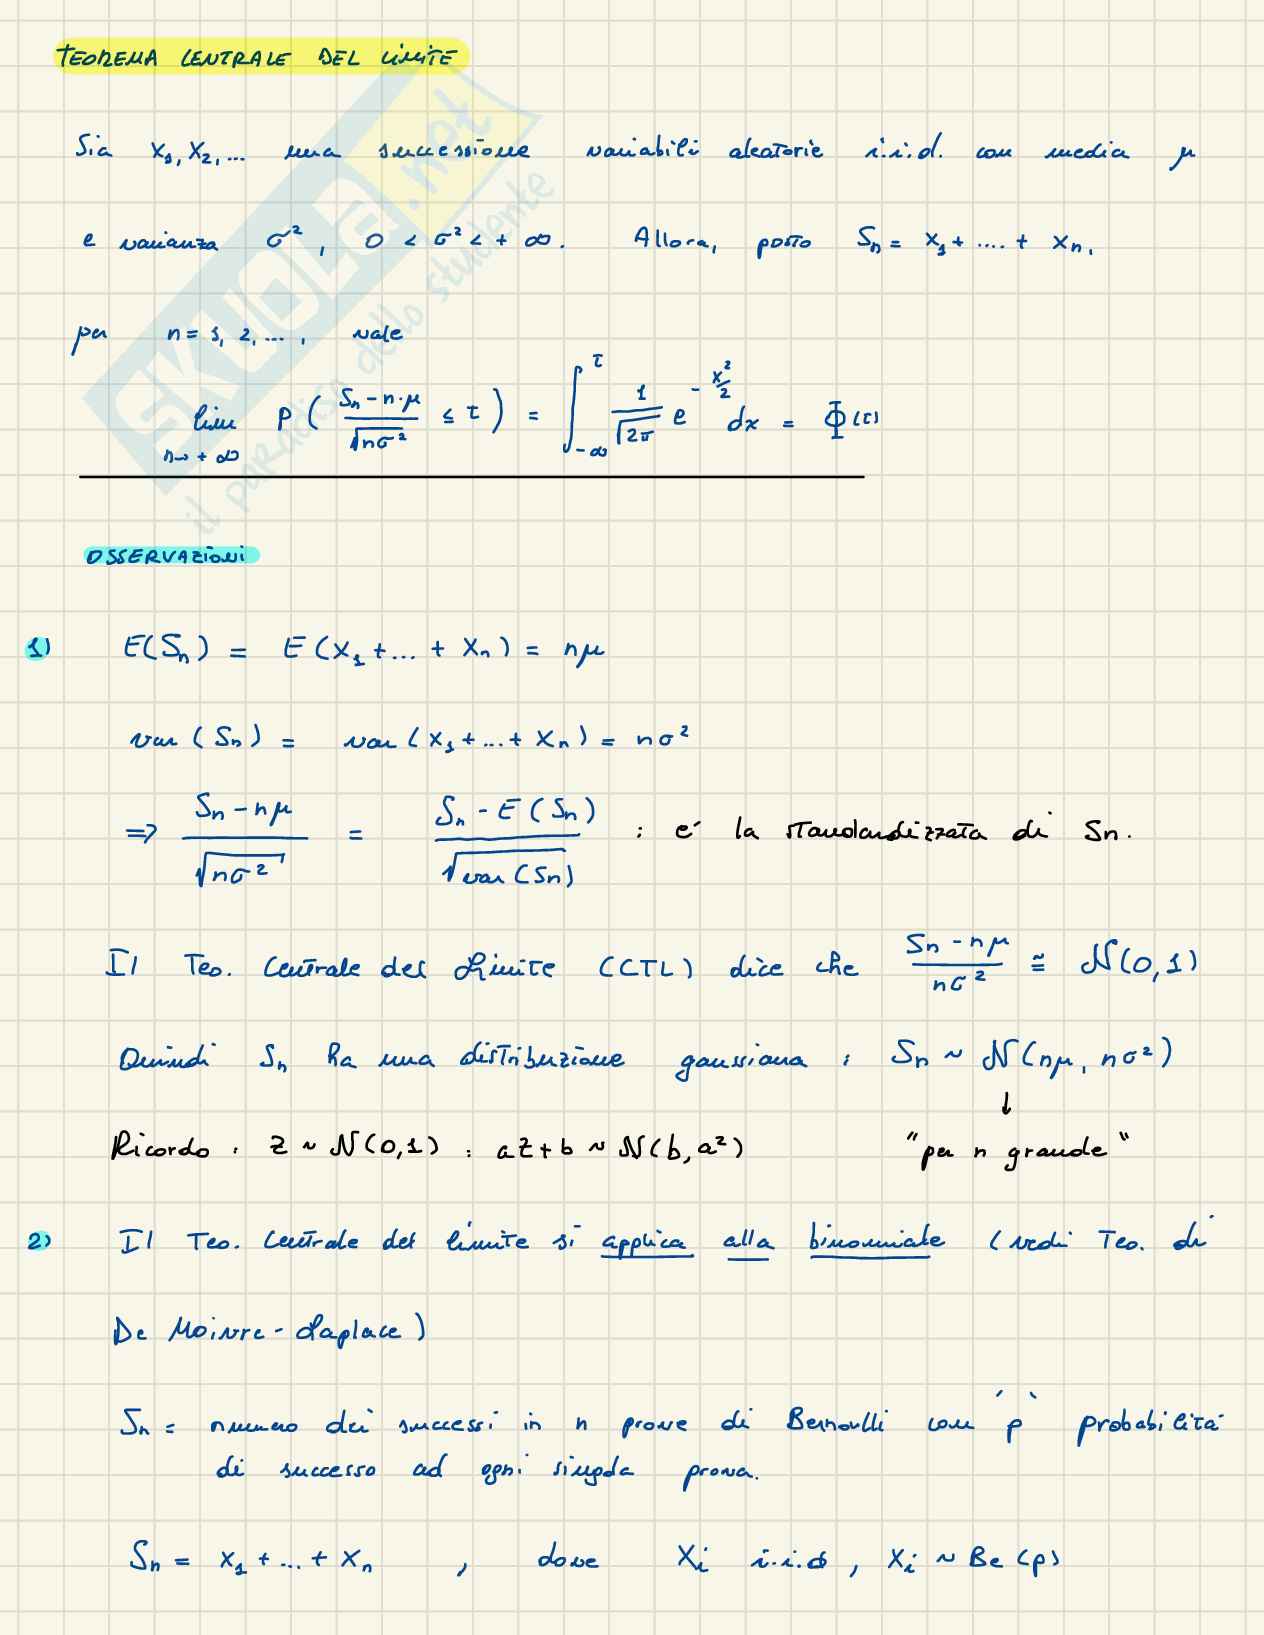 TEOREMA CENTRALE DEL LIMITE
Sia X₁, X₂, ... una successione variabili aleatorie i.i.d. con media μ
e varianza σ², 0 < σ² < + ∞. Allora, posto Sₙ = X₁ + .... + Xₙ,
per n = 1, 2, ..., vale
lim n→+∞ P ( (Sₙ - n·μ) / √(nσ²) ≤ t ) = ∫_{-∞}^{t} 1/√(2π) e^{-x²/2} dx = Φ(t)
OSSERVAZIONI
1) E(Sₙ) = E(X₁ + ... + Xₙ) = nμ
var (Sₙ) = var (X₁ + ... + Xₙ) = nσ²
⇒ (Sₙ - nμ) / √(nσ²) = (Sₙ - E(Sₙ)) / √(var(Sₙ)) : e' la standardizzata di Sn.
Il Teo. Centrale del Limite (CTL) dice che (Sn - nμ) / nσ² ≅ N(0,1)
Quindi Sₙ ha una distribuzione gaussiana : Sₙ ~ N(nμ, nσ²)
↓
Ricordo : Z ~ N(0,1) : aZ + b ~ N(b, a²) "per n grande"
2) Il Teo. Centrale del limite si applica alla binomiale (vedi Teo. di
De Moivre - Laplace)
Sₙ = numero dei successi in n prove di Bernoulli con 'p' probabilità
di successo ad ogni singola prova.
Sₙ = X₁ + ... + Xₙ , dove Xᵢ i.i.d, Xᵢ ~ Be(p)
SKUOLA.net
il paradiso dello studente